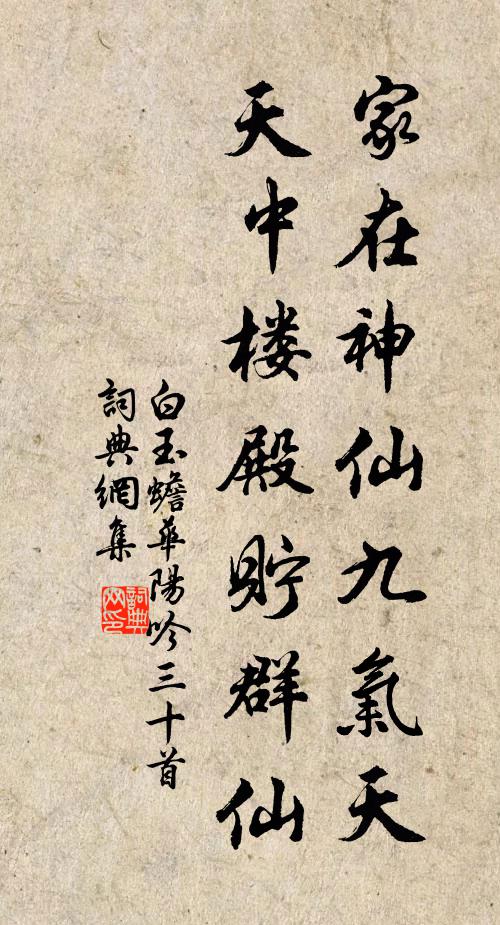 家在神仙九氣天
天中楼殿貯群仙
白玉蟾華陽吟三十首
詞典網集
詞典网印